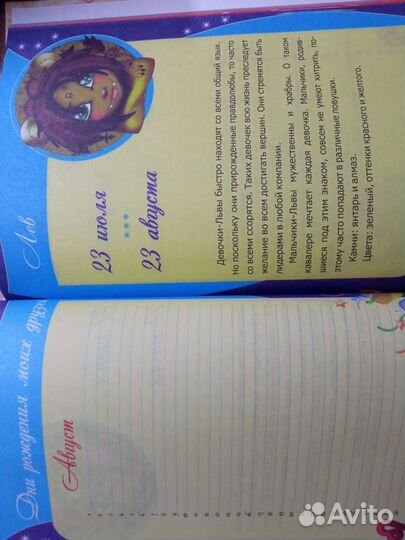 Лев
23 июля
***
23 августа
Девочки-Львы быстро находят со всеми общий язык.
Но поскольку они прирожденные правдолюбы, то часто
со всеми ссорятся. Таких девочек всю жизнь преследует
желание во всем достигать вершин. Они стремятся быть
лидерами в любой компании.
Мальчики-Львы мужественны и храбры. О таком
кавалере мечтает каждая девочка. Мальчики, родив-
шиеся под этим знаком, совсем не умеют хитрить, по-
этому часто попадают в различные ловушки.
Камни: янтарь и алмаз.
Цвета: зеленый, оттенки красного и желтого.
Дни рождения моих друзе
Август
1
2
3
4
5
6
7
8
9
10
11
12
13
14
15
16
17
18
19
Avito